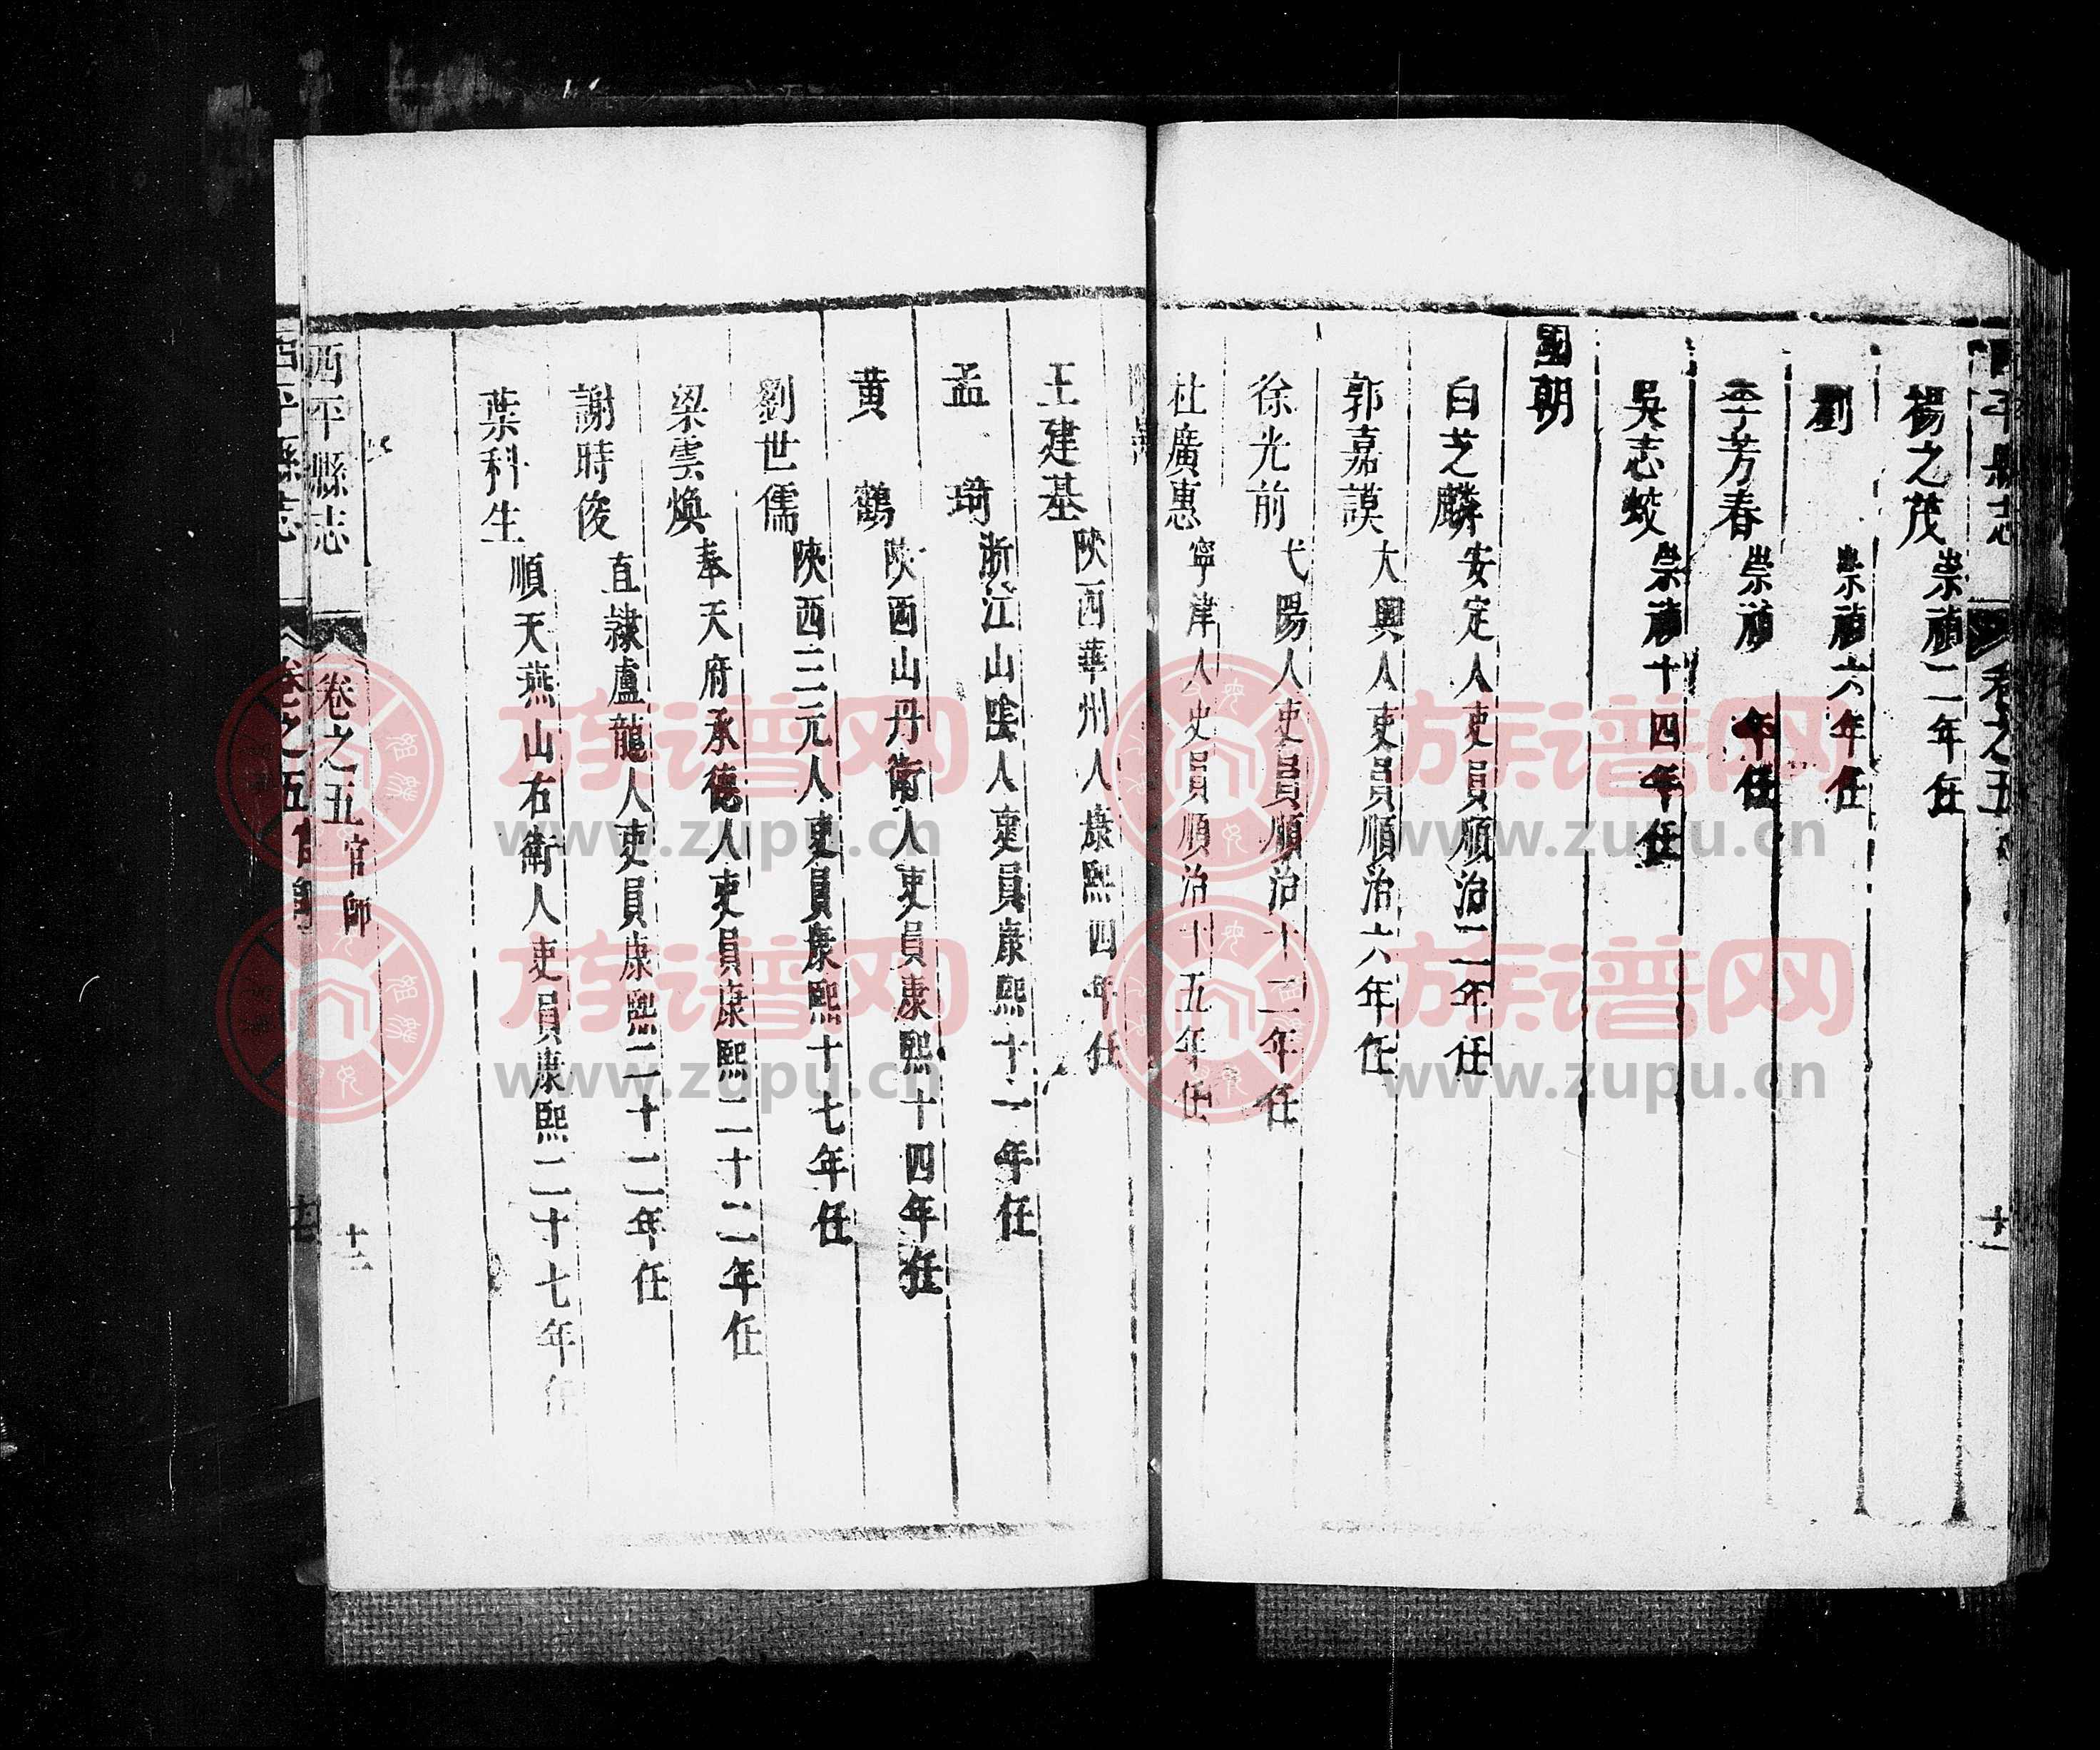 楊之茂 崇禎二年任
劉 崇禎六年任
李芳春 崇禎 年任
吳志蛟 崇禎十四年任
國朝
白芝麟 安定人吏員順治二年任
郭嘉謨 大興人吏員順治六年任
徐光前 弋陽人吏員順治十二年任
杜廣惠 寧津人吏員順治十五年任
王建基 陜西華州人康熙四年任
孟琦 浙江山陰人吏員康熙十二年任
黃鶴 陜西山丹衛人吏員康熙十四年任
劉世儒 陜西三元人吏員康熙十七年任
梁雲煥 奉天府承德人吏員康熙二十二年任
謝時俊 直隸盧龍人吏員康熙二十二年任
葉科生 順天燕山右衛人吏員康熙二十七年任
西平縣志 卷之五 官師 十二
西平縣志 卷之五
族谱网
www.zupu.cn
族谱网
www.zupu.cn
族谱网
www.zupu.cn
族谱网
www.zupu.cn